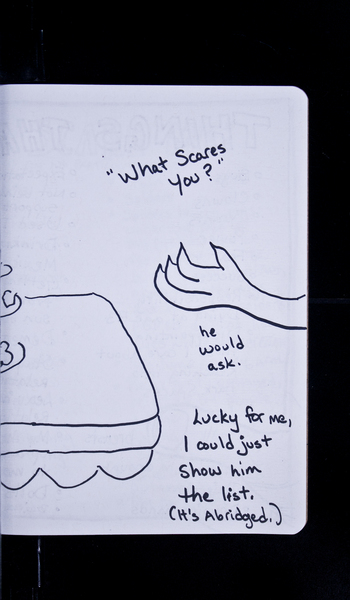 "What Scares
You?"
he
would
ask.
Lucky for me,
I could just
show him
the list.
(It's Abridged.)